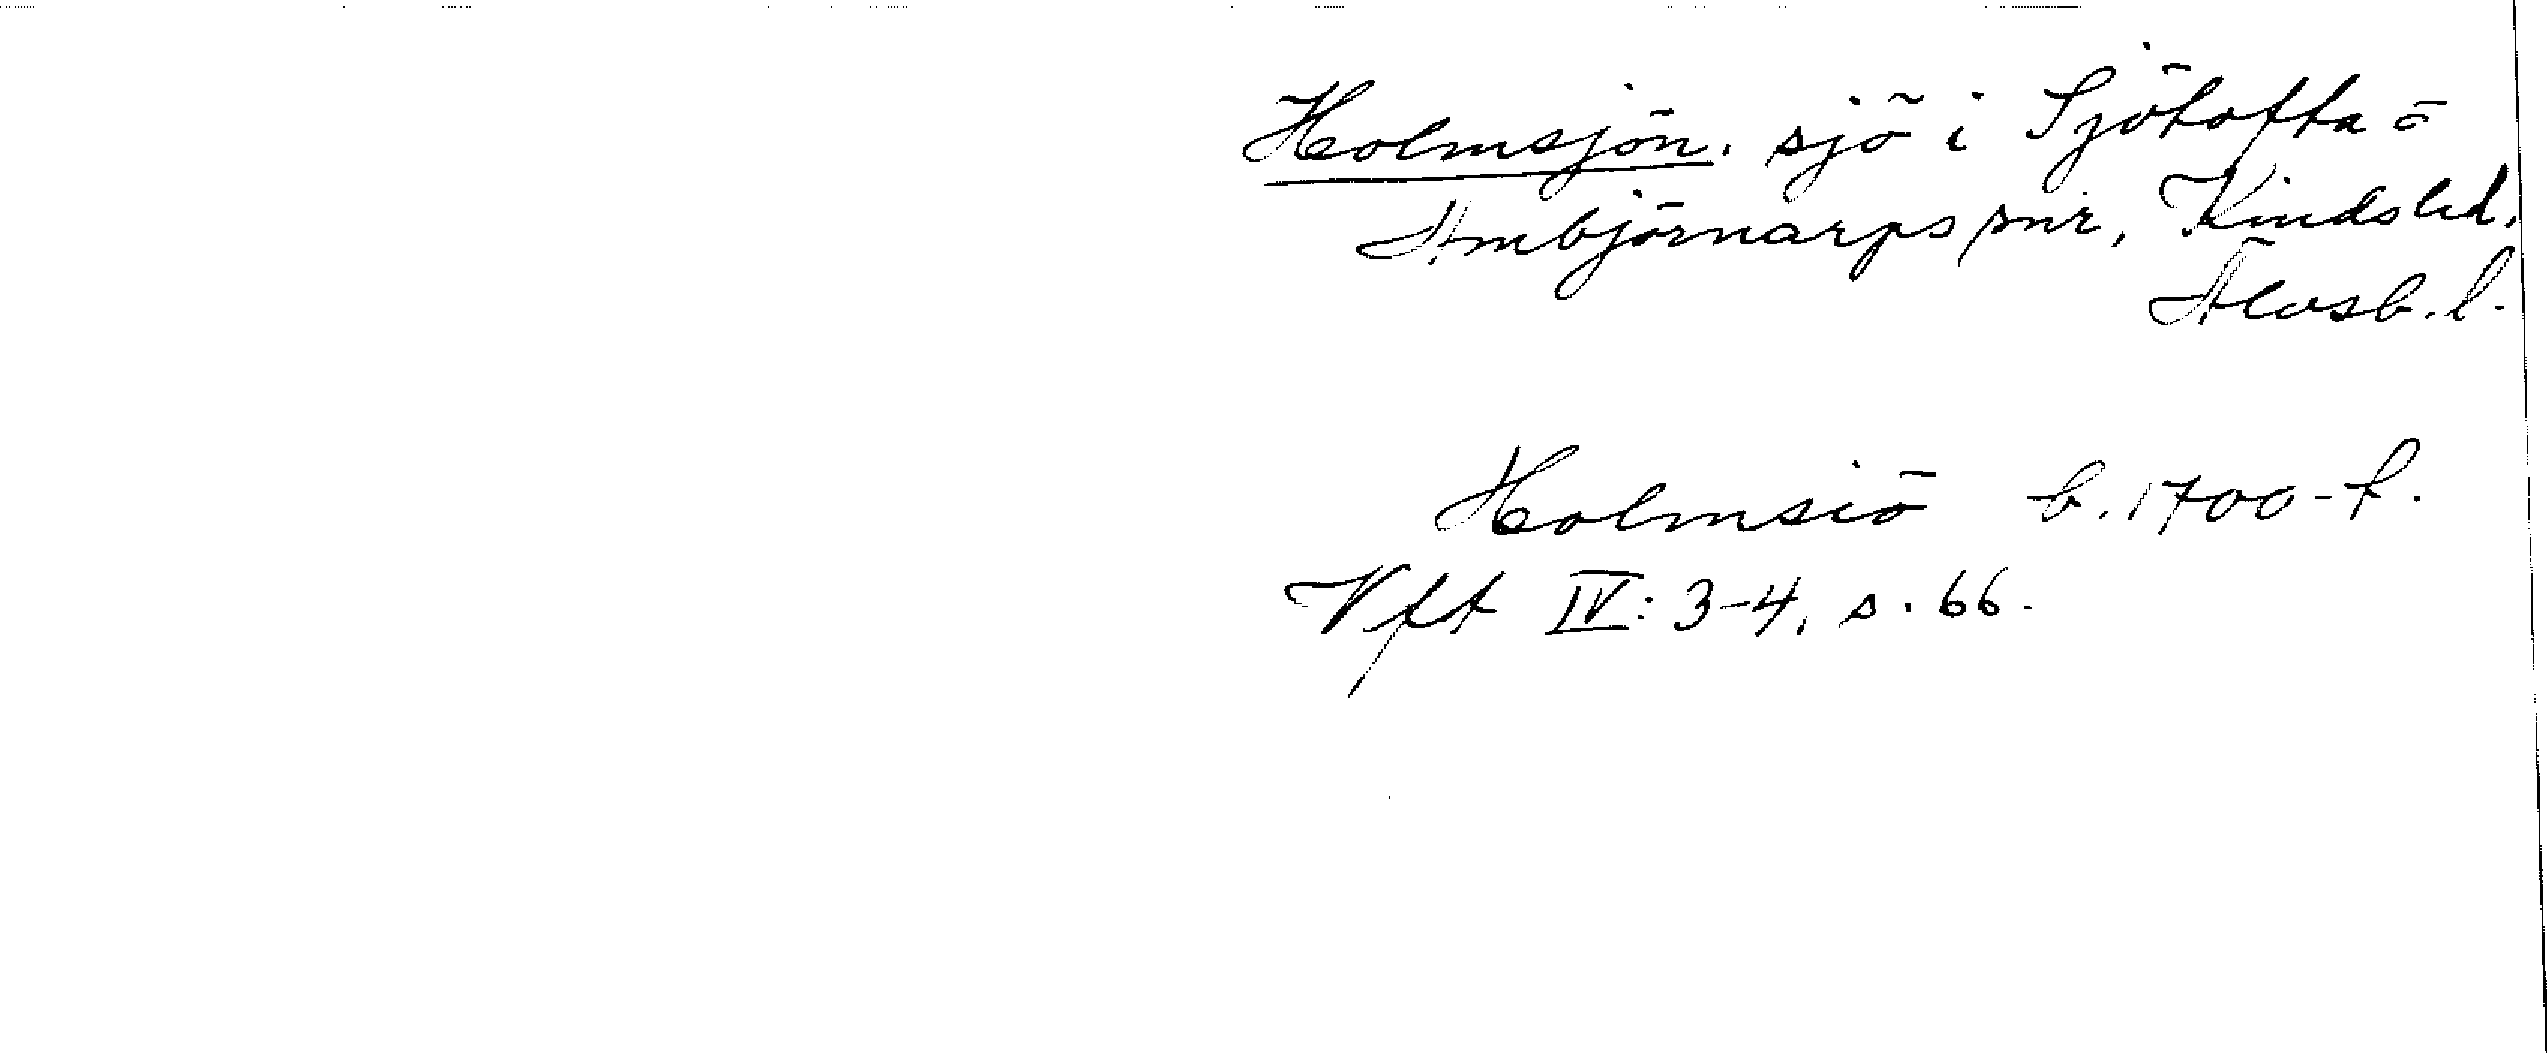 Holmsjön, sjö i Sjötofta o
Ambjörnarps snr, Kinds hd,
Älvsb. l.
Holmsiö b. 1700-t.
Vft IV: 3-4, s. 66.